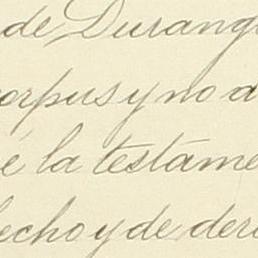 de Durang
orpus y no a
é la testame
echo y de der